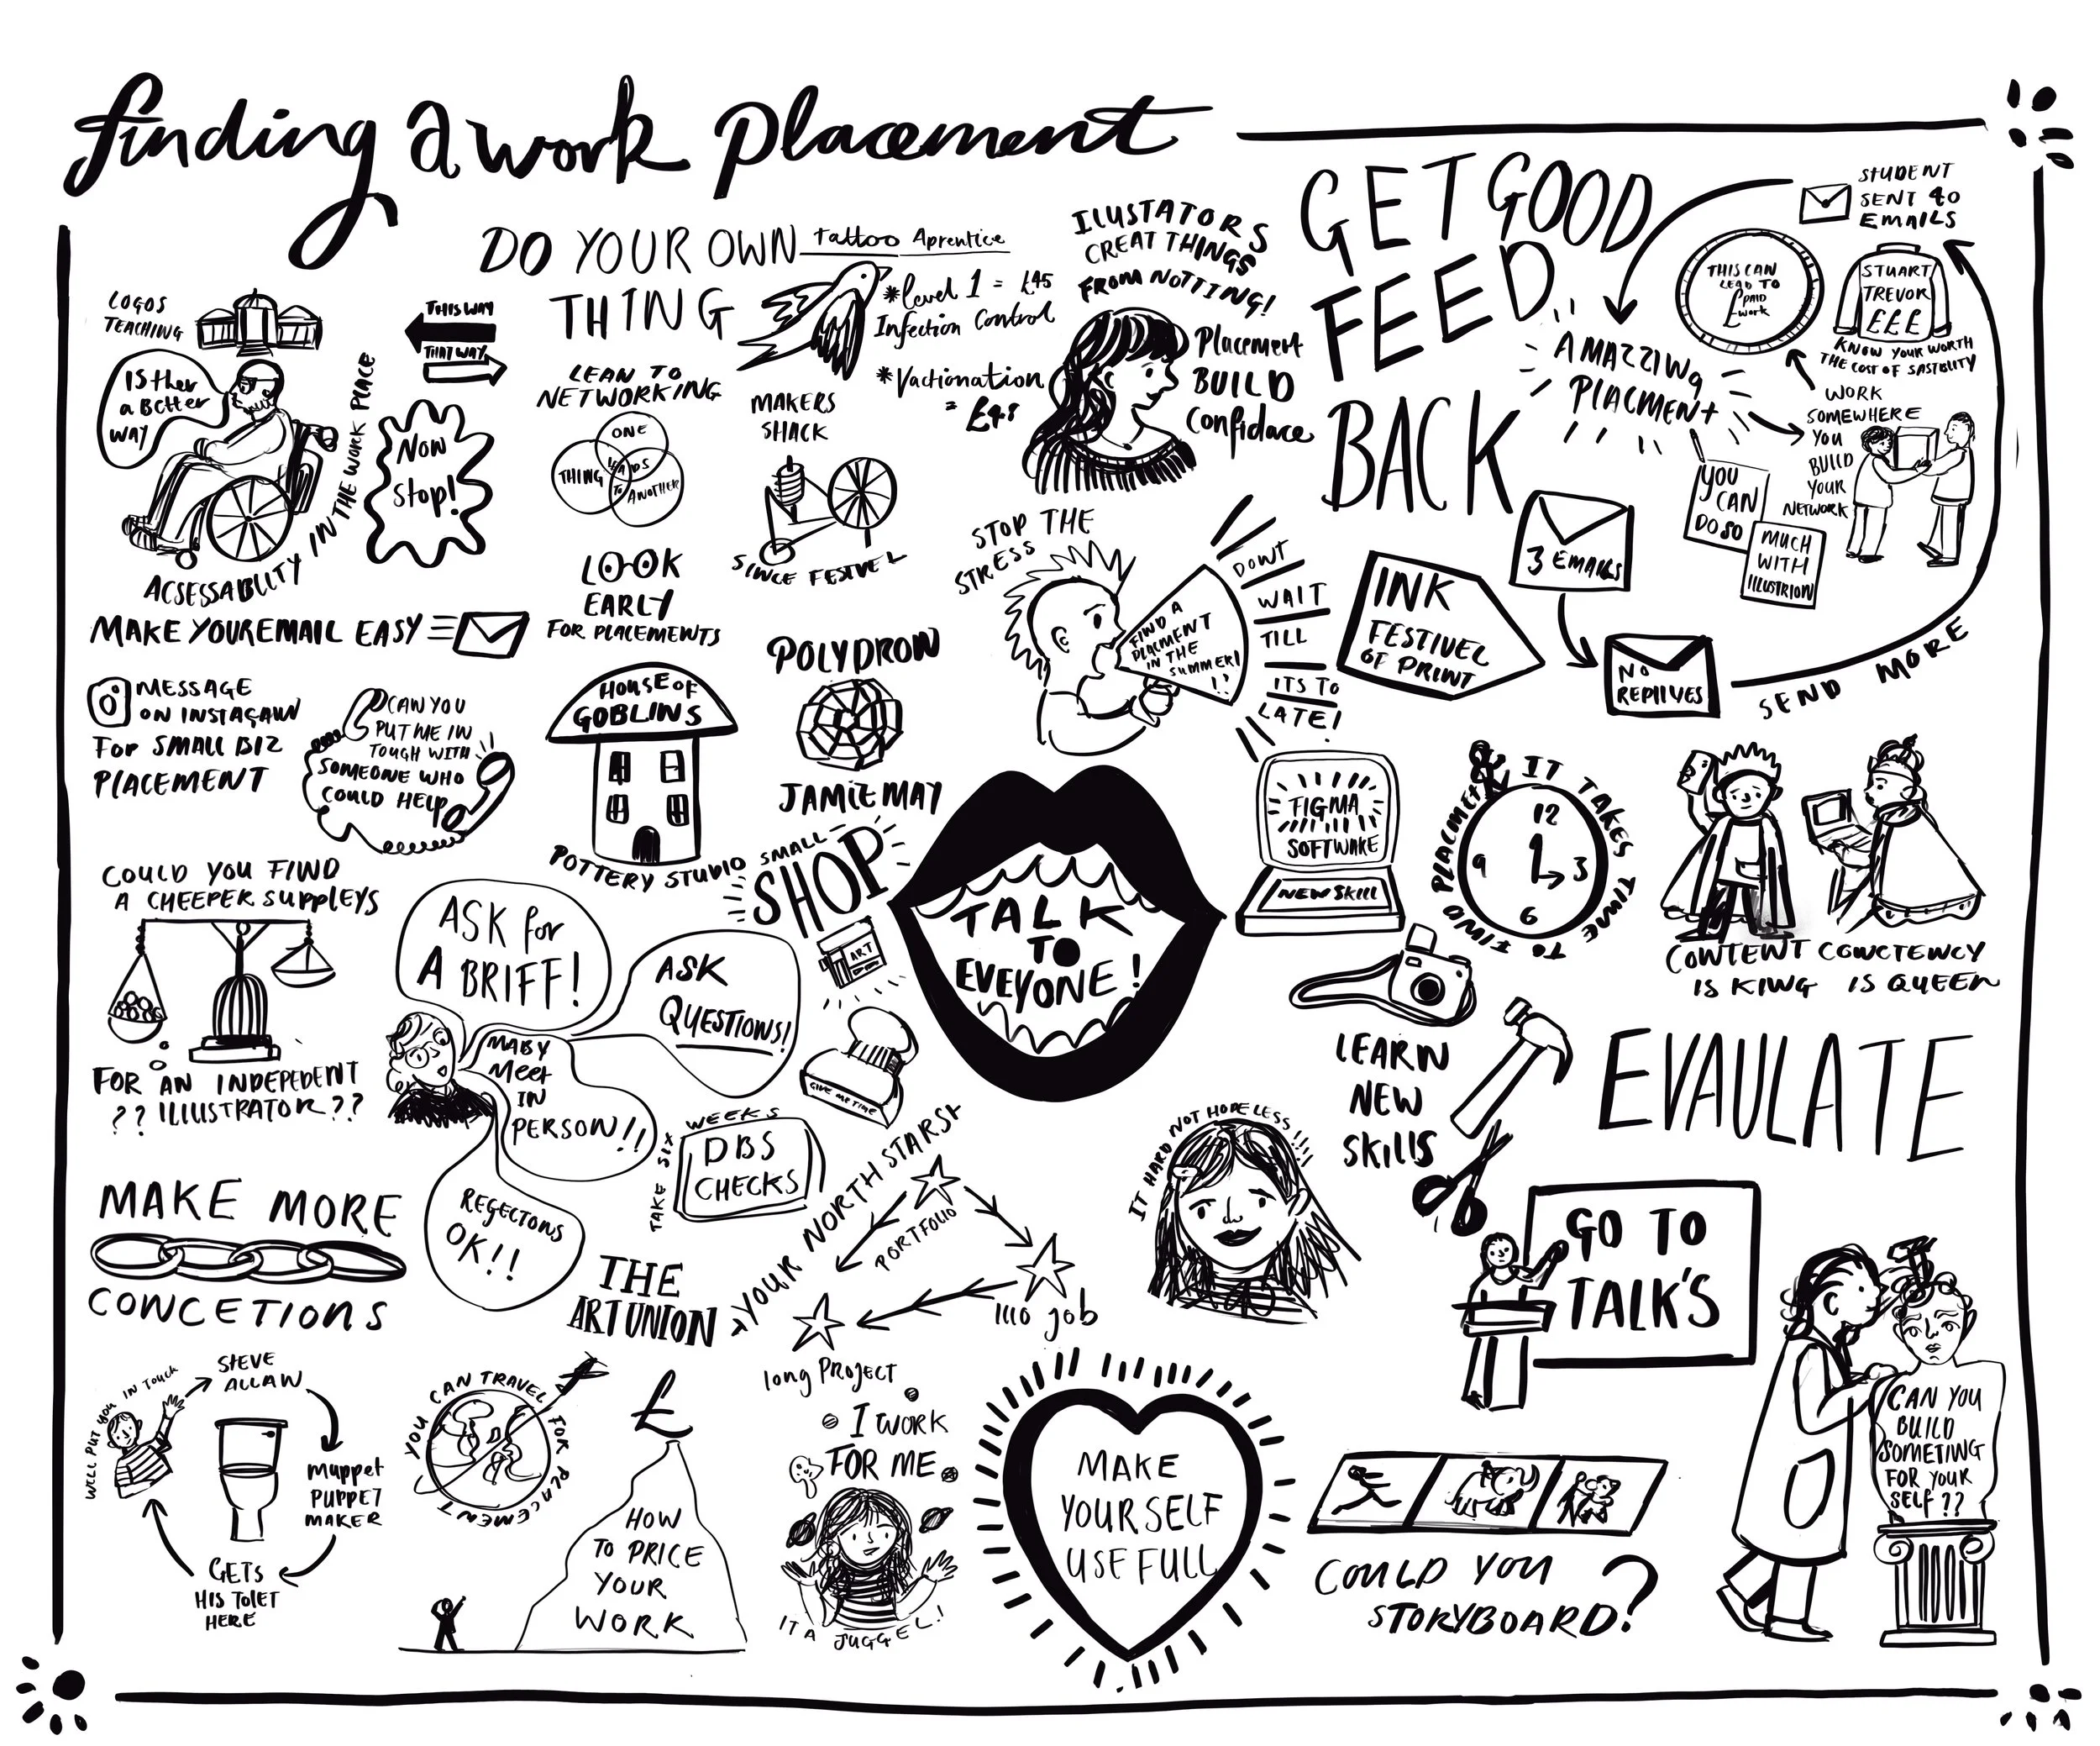 finding a work placement
DO YOUR OWN
THING
Tattoo Aprentice
*level 1 = £45
Infection Control
*Vactionation
LOGOS
TEACHING
IS ther
a Better
WAY
ACSESSABILITY IN THE WORK PLACE
THIS WAY
THAT WAY
NOW
Stop!
LEAN TO
NETWORKING
ONE
THING
LEADS
TO
ANOTHER
MAKERS
SHACK
LOOK
EARLY
FOR PLACEMENTS
ILUSTATORS
CREAT THINGS
FROM NOTTING!
Placement
BUILD
Confidace
GET GOOD
FEED
BACK
STUDENT
SENT 40
EMAILS
THIS CAN
LEAD TO
£ PAID
work
STUART
TREVOR
£££
KNOW YOUR WORTH
AMAZZIWG
PLACMENT
WORK
SOMEWHERE
YOU
BUILD
YOUR
NETWORK
YOU
CAN
DO SO
MUCH
WITH
3 EMAILS
NO
SEND MORE
STOP THE
STRESS
FIND A
PLACMENT
IN THE
SUMMER!
DONT
WAIT
TILL
ITS TO
LATE!
INK
FESTIVEL
OF PRINT
MAKE YOUR EMAIL EASY
MESSAGE
ON INSTAGAWN
For SMALL BIZ
PLACEMENT
CAN YOU
PUT ME IN
TOUGH WITH
SOMEONE WHO
COULD HELP
HOUSE OF
GOBLINS
POTTERY STUDIO
POLYDRON
JAMIE MAY
SMALL
SHOP
ART
TALK
TO
EVEYONE!
FIGMA
SOFTWARE
NEW SKILL
IT TAKES TIME TO FIND PLACMENT
12
3
6
9
CONTENT
IS KIWG
COWCTENCY
IS QUEEN
COULD YOU FIWD
A CHEEPER SUPPLEYS
FOR AN INDEPEDENT
?? ILLUSTRATOR ??
ASK for
A BRIFF!
ASK
QUESTIONS!
MABY
Meet
IN
PERSON!!
REGECTONS
OK!!
GIVE ME TIME
TAKE SIX WEEKS
DBS
CHECKS
LEARN
NEW
SKIllS
EVAULATE
MAKE MORE
CONCETIONS
THE
ART UNION
YOUR NORTH STARS
PORTFOLIO
job
long Project
IT HARD NOT HOPELESS!!!!
GO TO
TALK'S
WILL PUT YOU IN TOUCH
STEVE
ALLAW
Muppet
PUPPET
MAKER
GETS
HIS TOlET
HERE
YOU CAN TRAVEL FOR PLACEMENT
£
HOW
TO PRICE
YOUR
WORK
I WORK
FOR ME
IT A JUGGEL!
MAKE
YOURSELF
USEFULL
COULD YOU
STORYBOARD?
CAN YOU
BUILD
SOMETING
FOR YOUR
SELF??